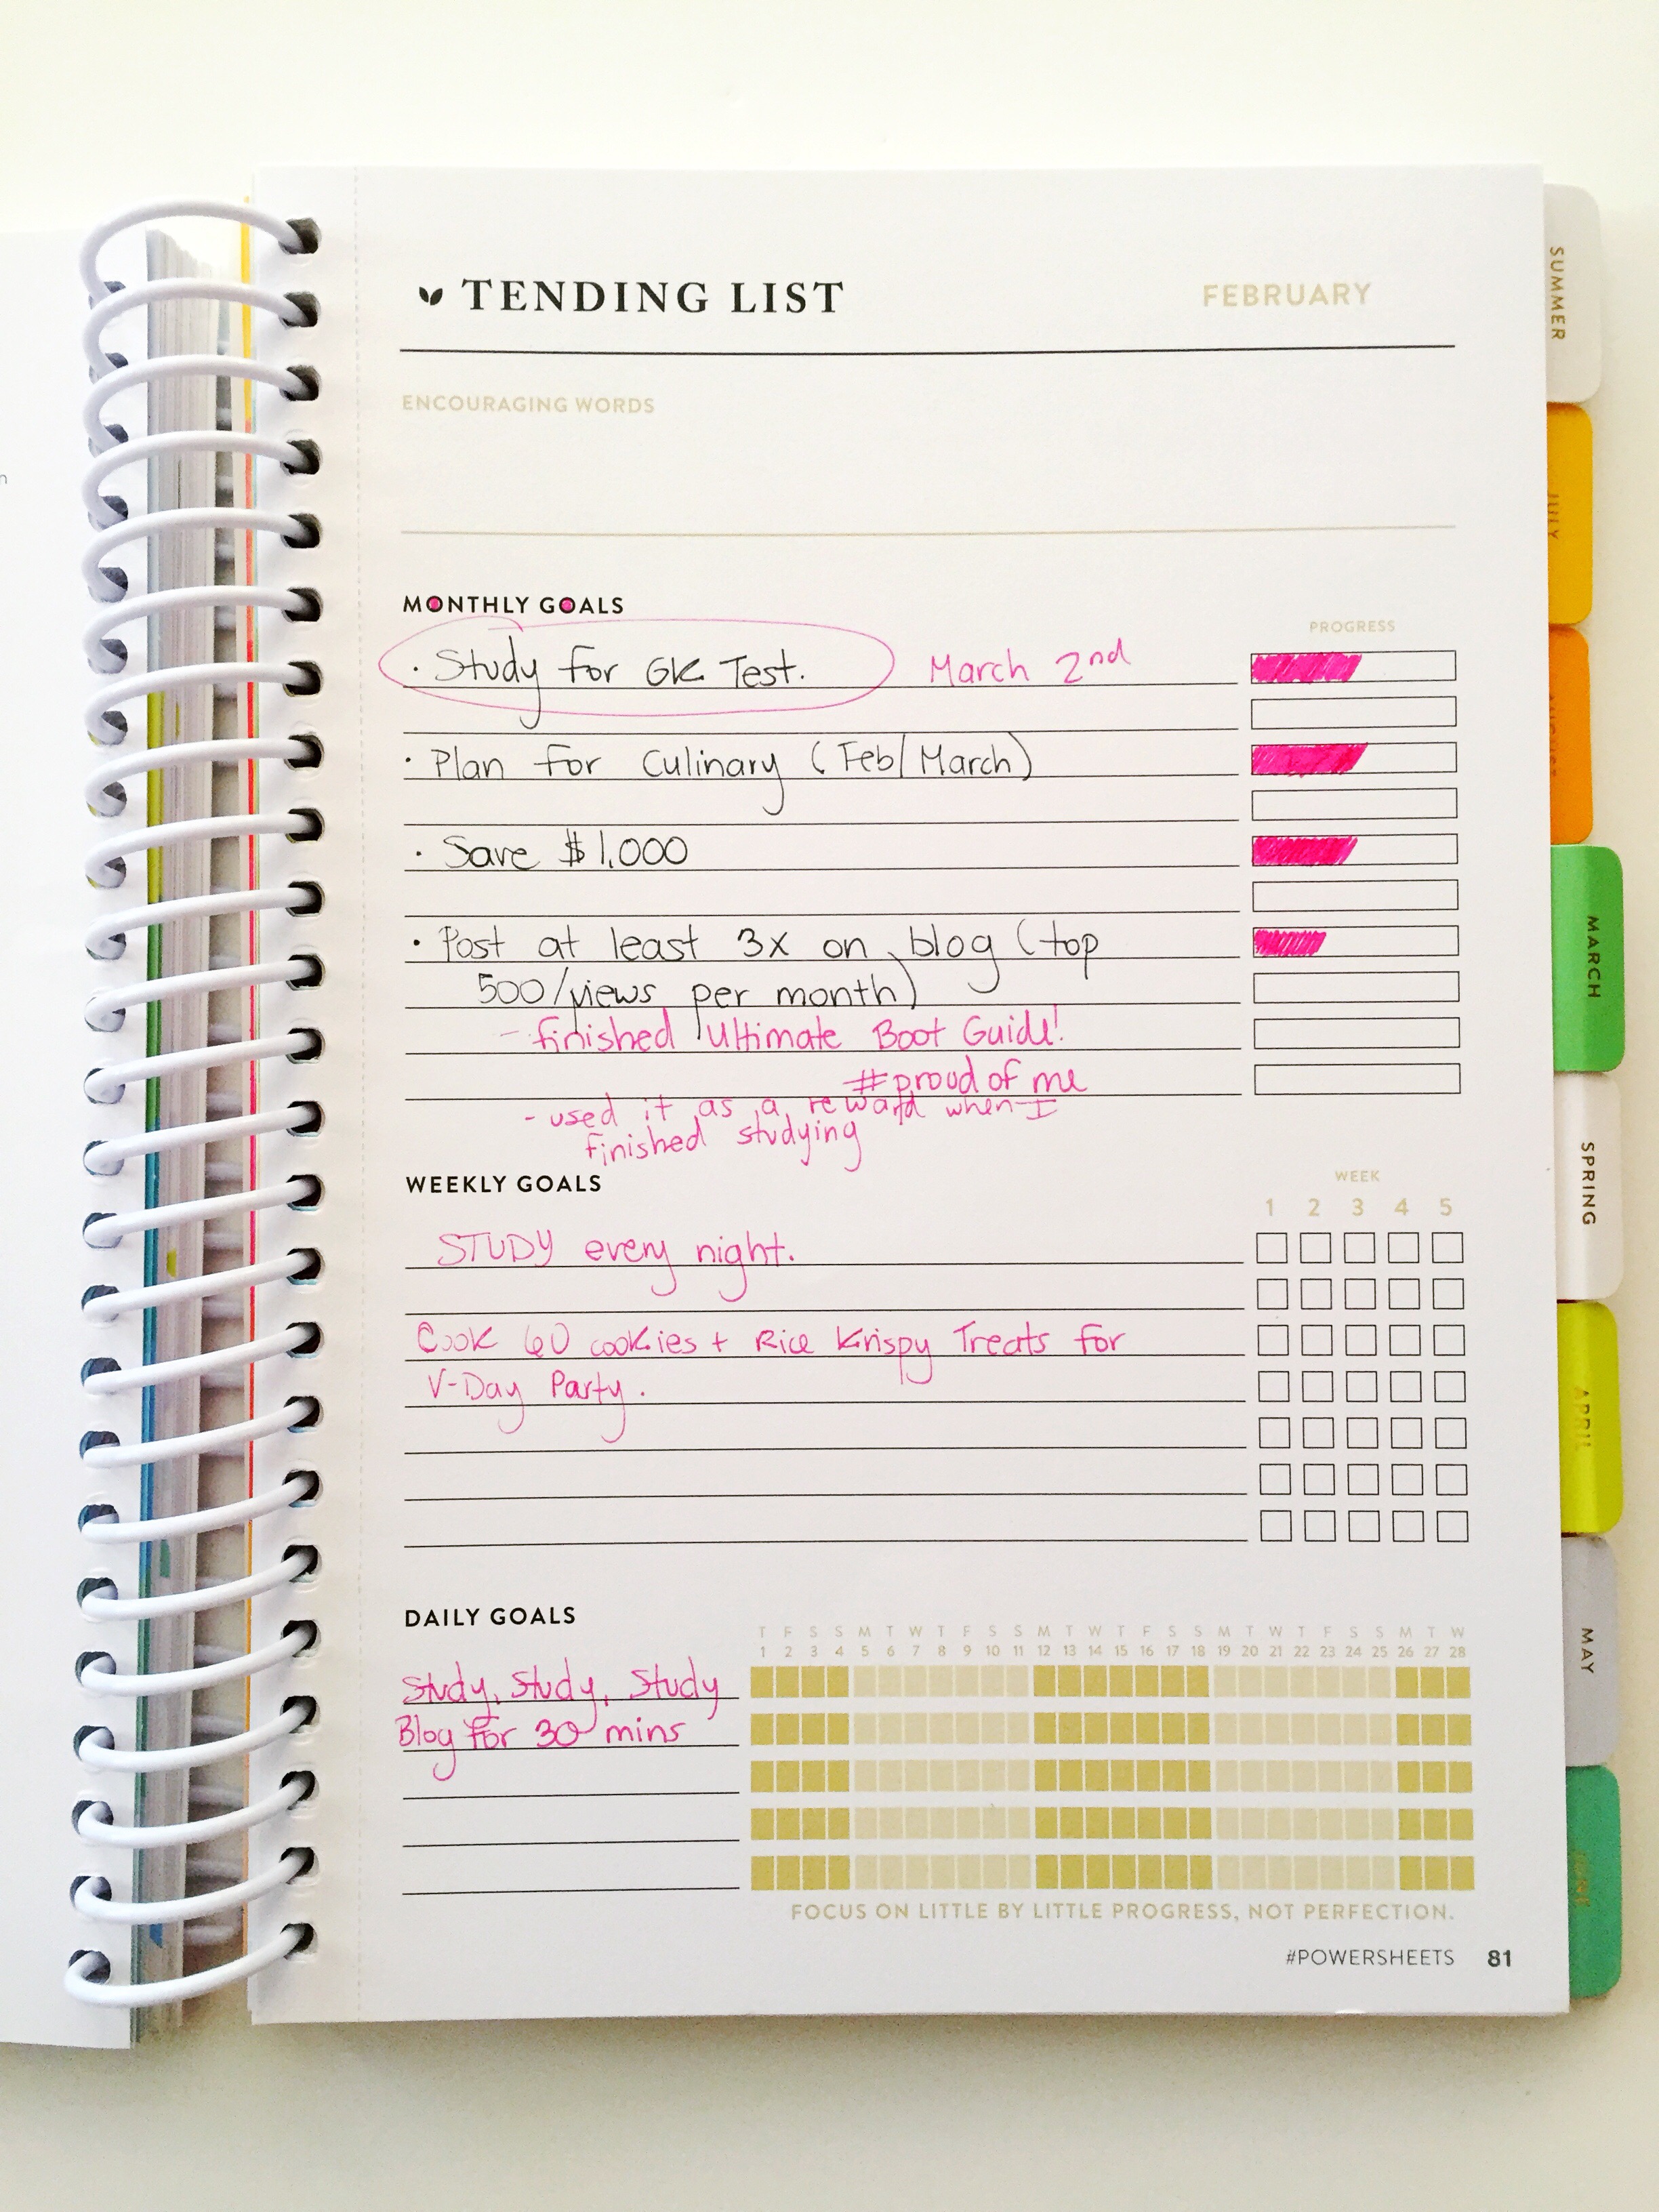 TENDING LIST FEBRUARY
ENCOURAGING WORDS
MONTHLY GOALS
PROGRESS
· Study for GK Test. March 2nd
· Plan for Culinary (Feb/March)
· Save $1,000
· Post at least 3x on blog (top
500/views per month)
- finished Ultimate Boot Guide!
#proud of me
- used it as a reward when I
finished studying
WEEKLY GOALS
WEEK
1 2 3 4 5
STUDY every night.
Cook 60 cookies + Rice Krispy Treats for
V-Day Party.
DAILY GOALS
T F S S M T W T F S S M T W T F S S M T W T F S S M T W
1 2 3 4 5 6 7 8 9 10 11 12 13 14 15 16 17 18 19 20 21 22 23 24 25 26 27 28
Study, Study, Study
Blog for 30 mins
FOCUS ON LITTLE BY LITTLE PROGRESS, NOT PERFECTION.
#POWERSHEETS 81
SUMMER
JULY
AUGUST
MARCH
SPRING
APRIL
MAY
JUNE
n